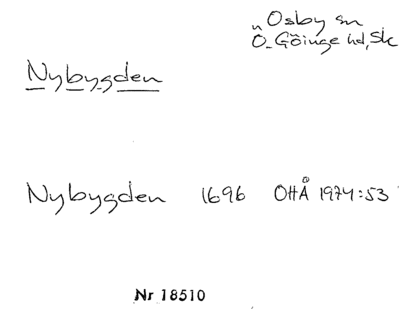 "Osby sn
Ö. Göinge hd, Sk
Nybygden
Nybygden 1696 OHÅ 1974:53
Nr 18510